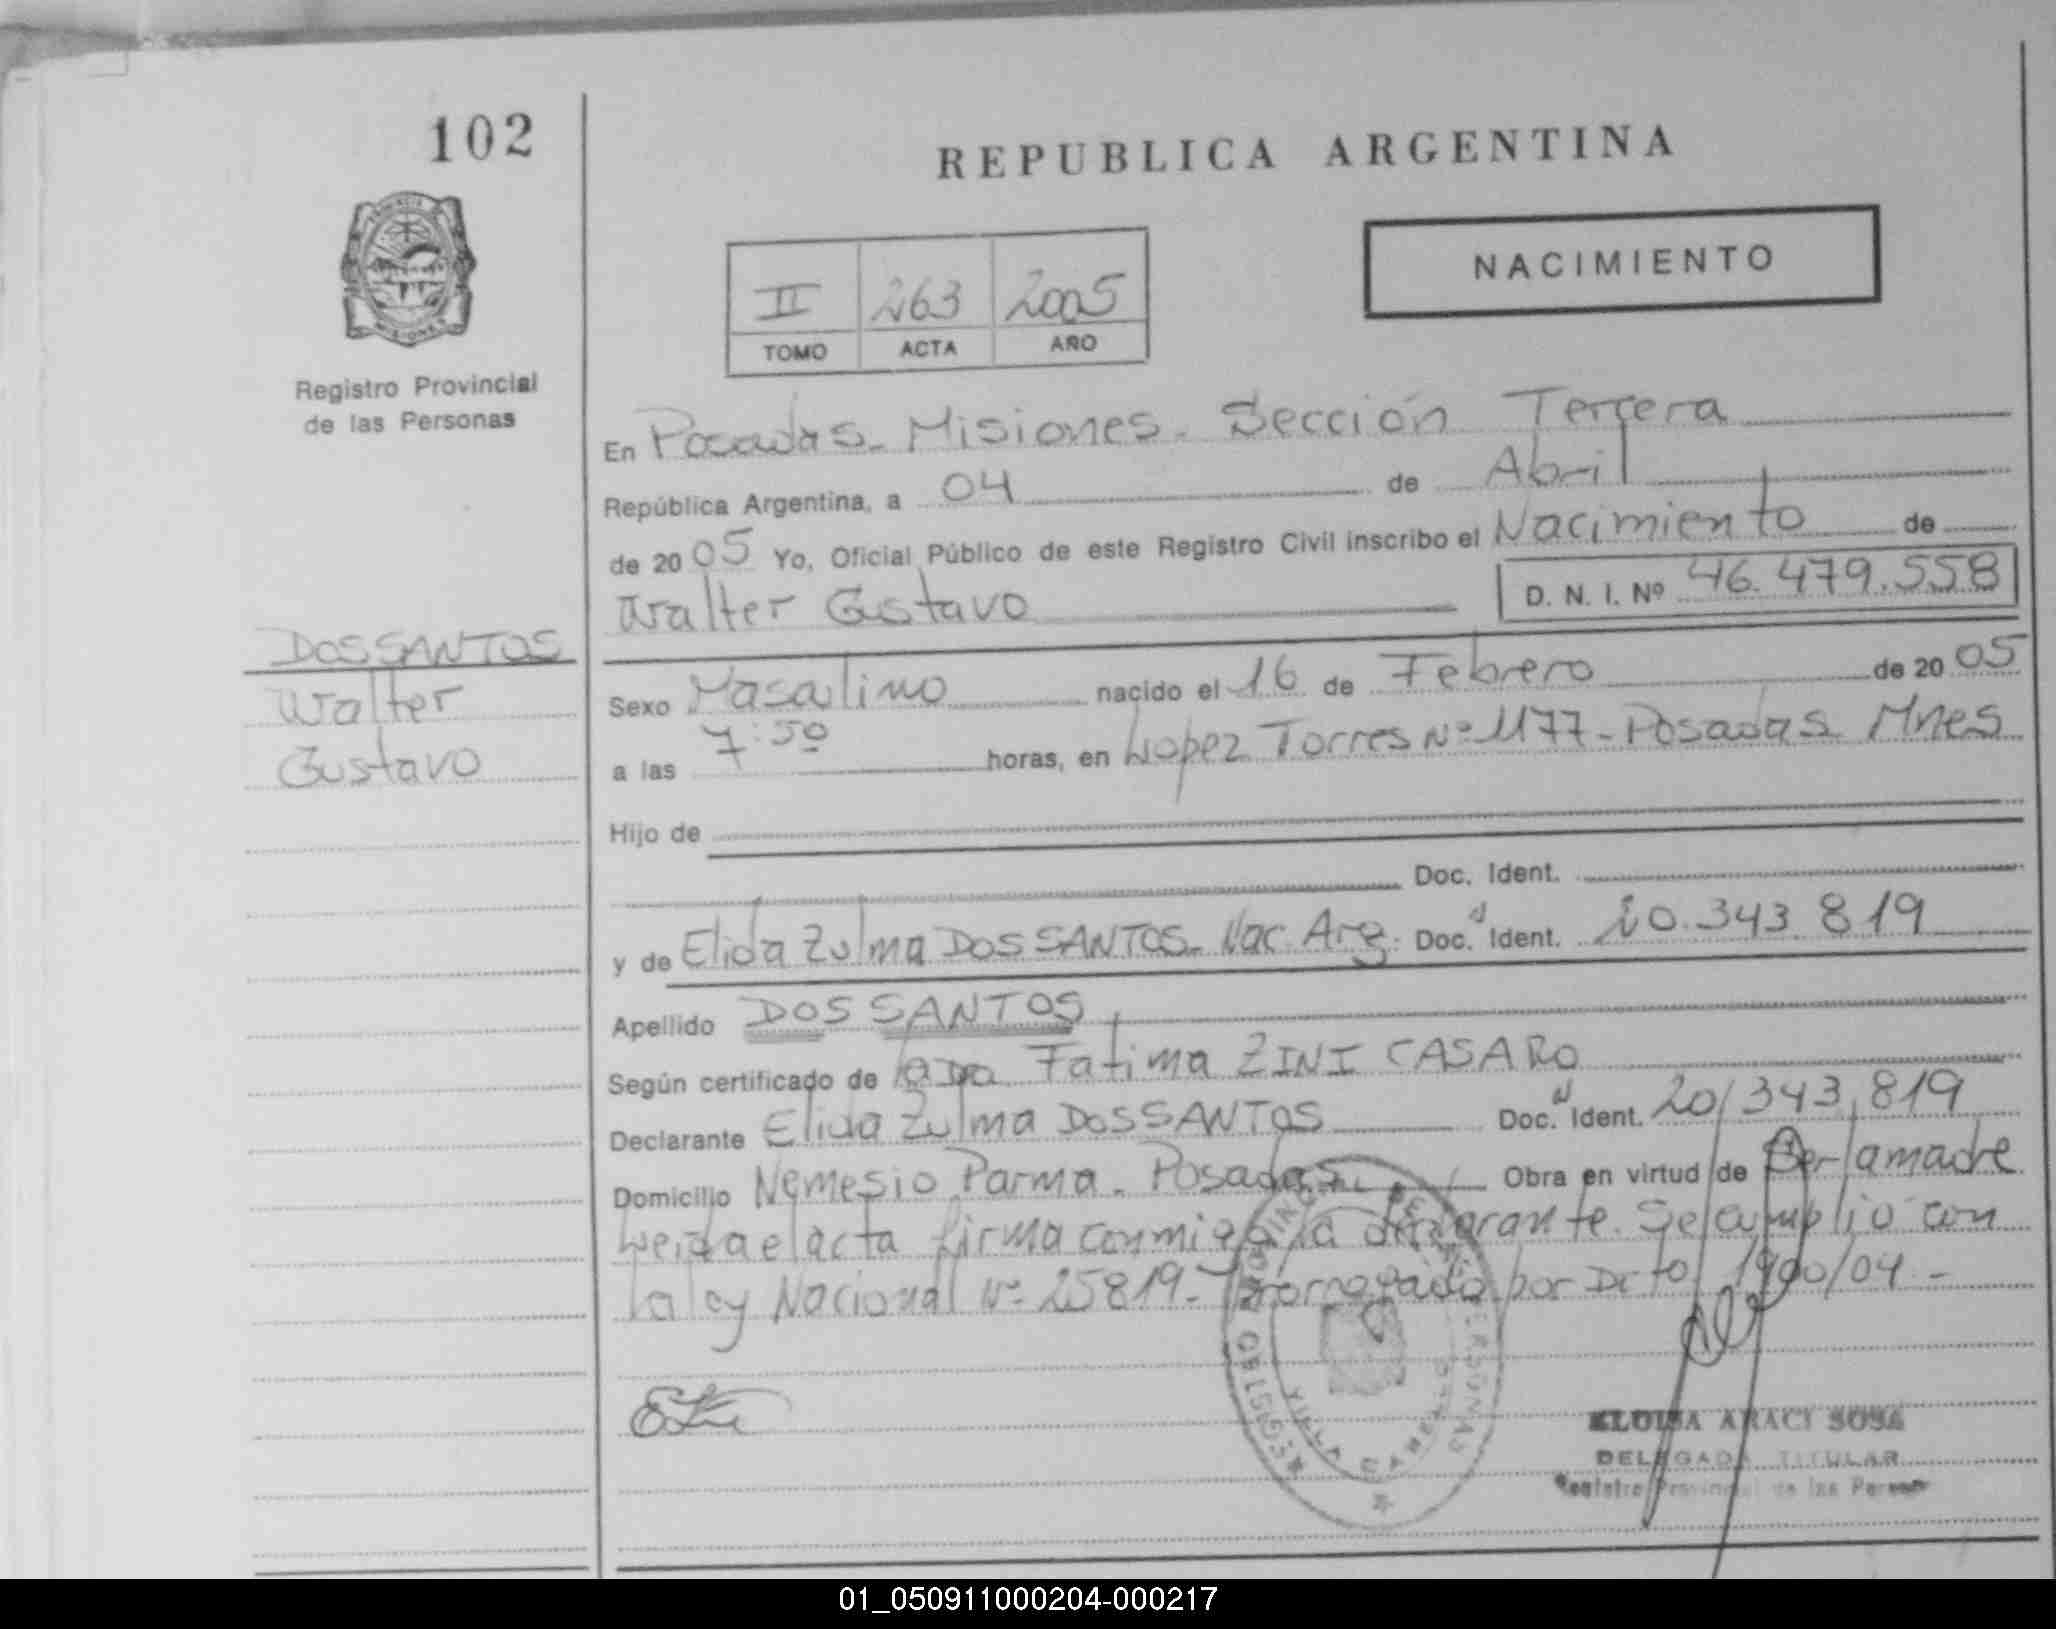 102
REPUBLICA ARGENTINA
PROVINCIA
MISIONES
Registro Provincial
de las Personas
II 263 2005
TOMO ACTA AÑO
NACIMIENTO
En Posadas - Misiones - Sección Tercera
República Argentina, a 04 de Abril
de 2005 Yo, Oficial Público de este Registro Civil inscribo el Nacimiento de
Walter Gustavo D. N. I. Nº 46.479.558
DOS SANTOS
Walter
Gustavo
Sexo Masculino nacido el 16 de Febrero de 2005
a las 7:50 horas, en Lopez Torres Nº 1177 - Posadas Mnes
Hijo de
Doc. Ident.
y de Elida Zulma DOS SANTOS - Nac. Arg. Doc. Ident. 20.343.819
Apellido DOS SANTOS
Según certificado de la Dra Fatima ZINI CASARO
Declarante Elida Zulma DOS SANTOS Doc. Ident. 20/343.819
Domicilio Nemesio Parma - Posadas Obra en virtud de Ser la madre
Leida el acta firma conmigo la declarante. Se cumplio con
la ley Nacional Nº 25819 - Prorrogado por Dcto 1900/04 -
VILLA SARRITA
ELOISA ARACI SOSA
DELEGADA TITULAR
Registro Provincial de las Person
01_050911000204-000217